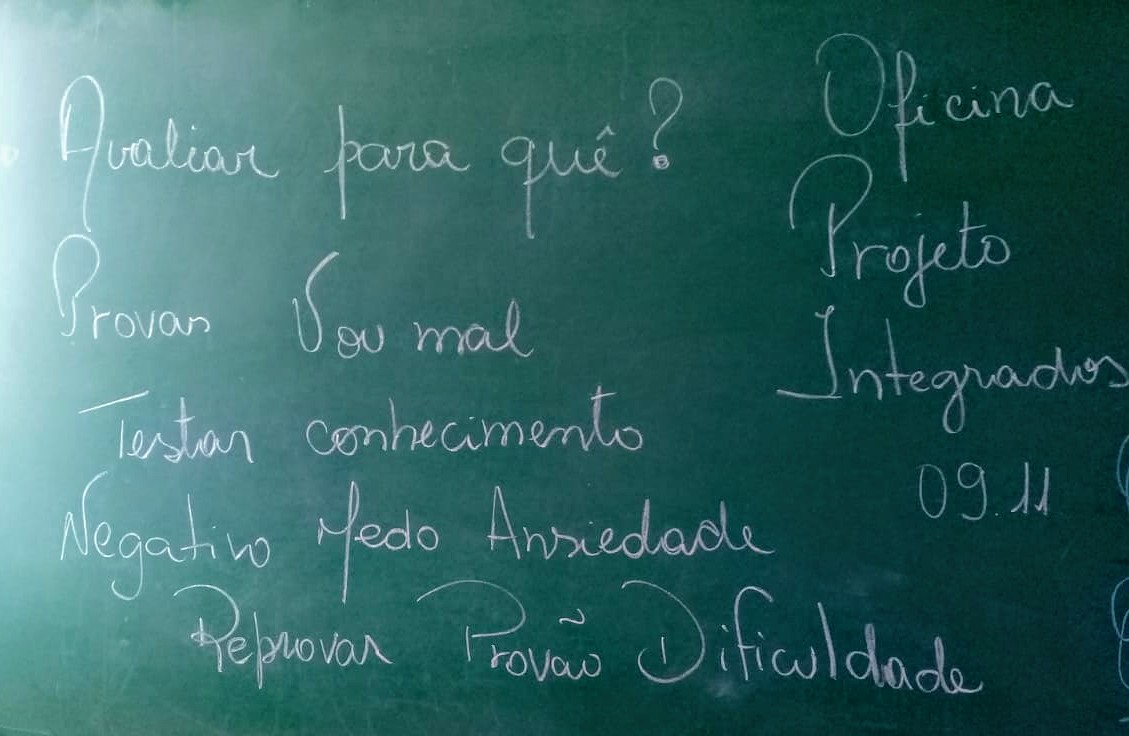 Avaliar para quê?
Provas Vou mal
Testar conhecimento
Negativo Medo Ansiedade
Reprovar Provão Dificuldade
Oficina
Projeto
Integrados
09.11